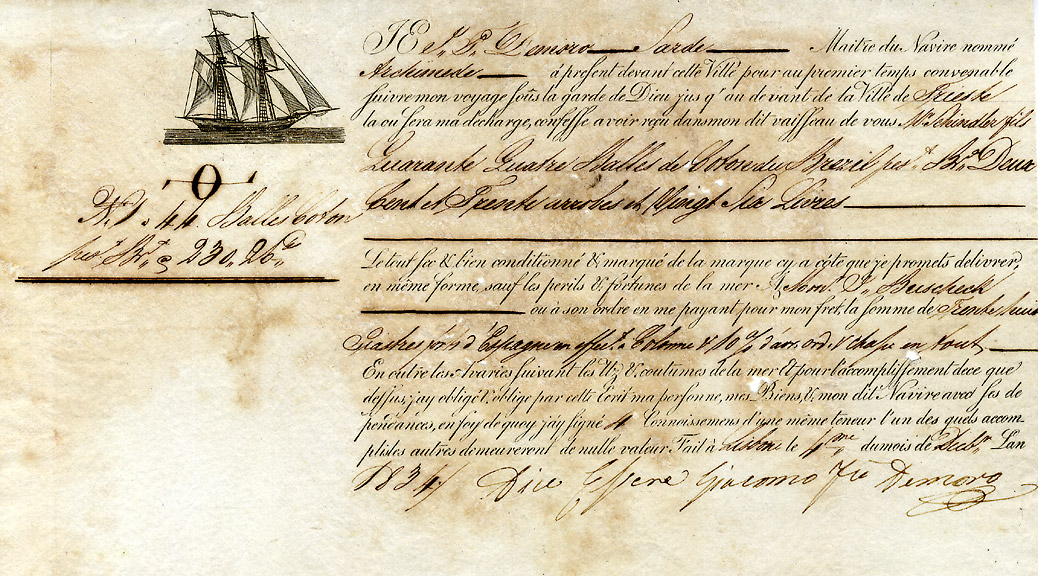 JE J. F. Demoro Sarde Maitre du Navire nommé
Archimede á present devant cette Ville pour au premier temps convenable
suivre mon voyage sous la garde de Dieu jus q' au devant de la Ville de Trieste
la ou sera ma decharge, confesse avoir reçu dans mon dit vaisseau de vous Schindler fils
Quarante Quatre Balles de Coton du Brezil pest. Bt. Deux
Cent et Trente arrobes et Vingt Six Livres
O
No. 1 a 44. Balles Coton
pest. Bt. @ 230, 26
Le tout sec & bien conditionné & marqué de la marque cy a côte que je promets delivrer,
en même forme, sauf les perils & fortunes de la mer A
ou à son ordre en me payant pour mon fret, la somme de Trente huit
Piastres d'Espagne en effect. a Colonne & 10 % d'avs. ord. & chape en tout
En outre les Avaries suivant les Uz, & coutumes de la mer & pour l'accomplissement de ce que
dessus, j'ay obligé & oblige par cette Ecrit ma personne, mes Biens, & mon dit Navire avec ses de
pendances, en foy de quoy j'ay signé 4 Connoissemens d'une même teneur l'un des quels accom-
plis les autres demeureront de nulle valeur Fait à Lisbne le 4me du mois de Decbr. L'an
1834 Dice Essere Giacomo Fco Demoro